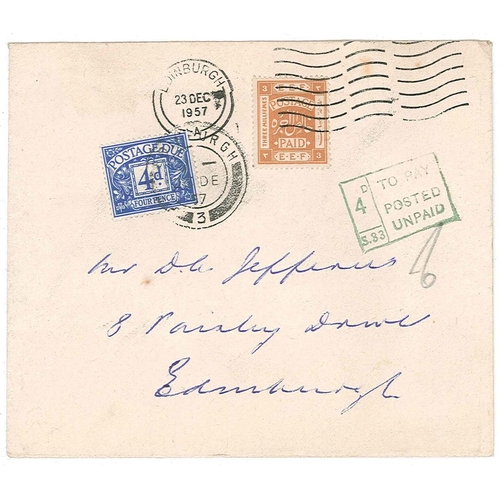 EDINBURGH
23 DEC
1957
3 E.E.F. 3
THREE MILLIEMES
POSTAGE
PAID
٣ E.E.F. 3
POSTAGE DUE
4d
FOUR PENCE
3
4D TO PAY
POSTED
UNPAID
S.83
6
Mr D.C. Jefferies
8 Paisley Drive
Edinburgh